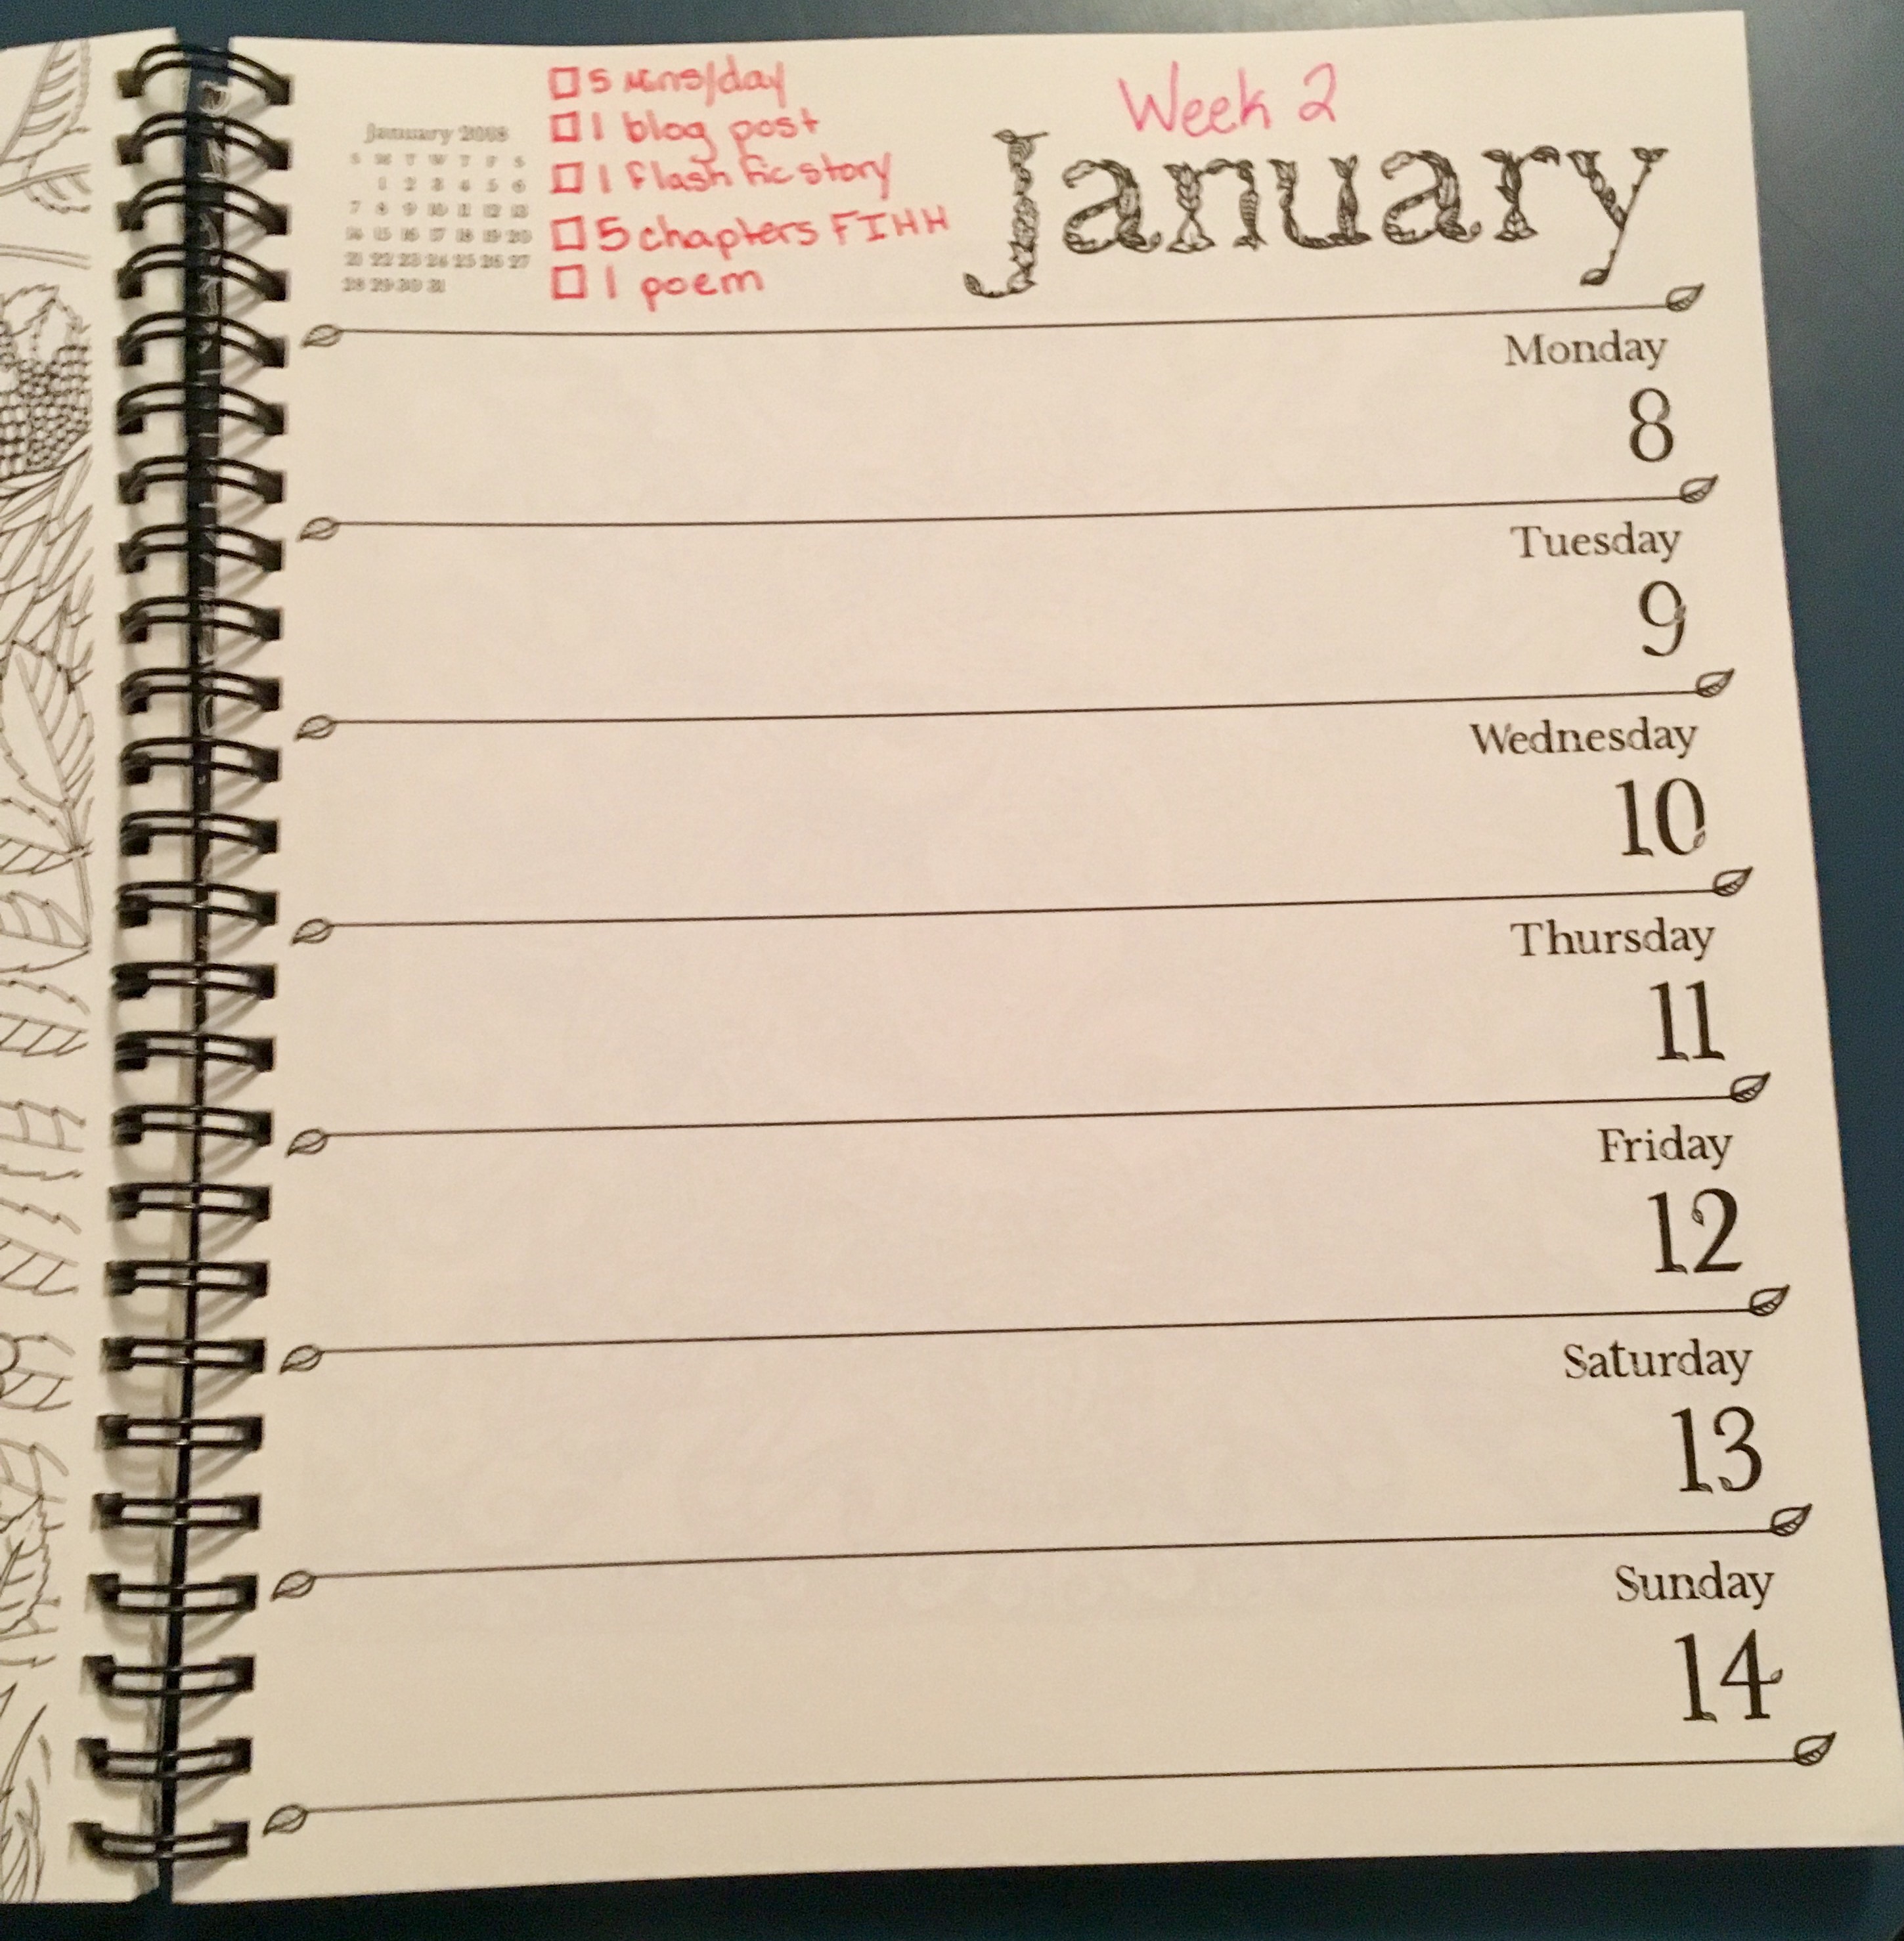 Week 2
January
January 2018
S M T W T F S
1 2 3 4 5 6
7 8 9 10 11 12 13
14 15 16 17 18 19 20
21 22 23 24 25 26 27
28 29 30 31
5 mins/day
1 blog post
1 flash fic story
5 chapters FIHH
1 poem
Monday
8
Tuesday
9
Wednesday
10
Thursday
11
Friday
12
Saturday
13
Sunday
14